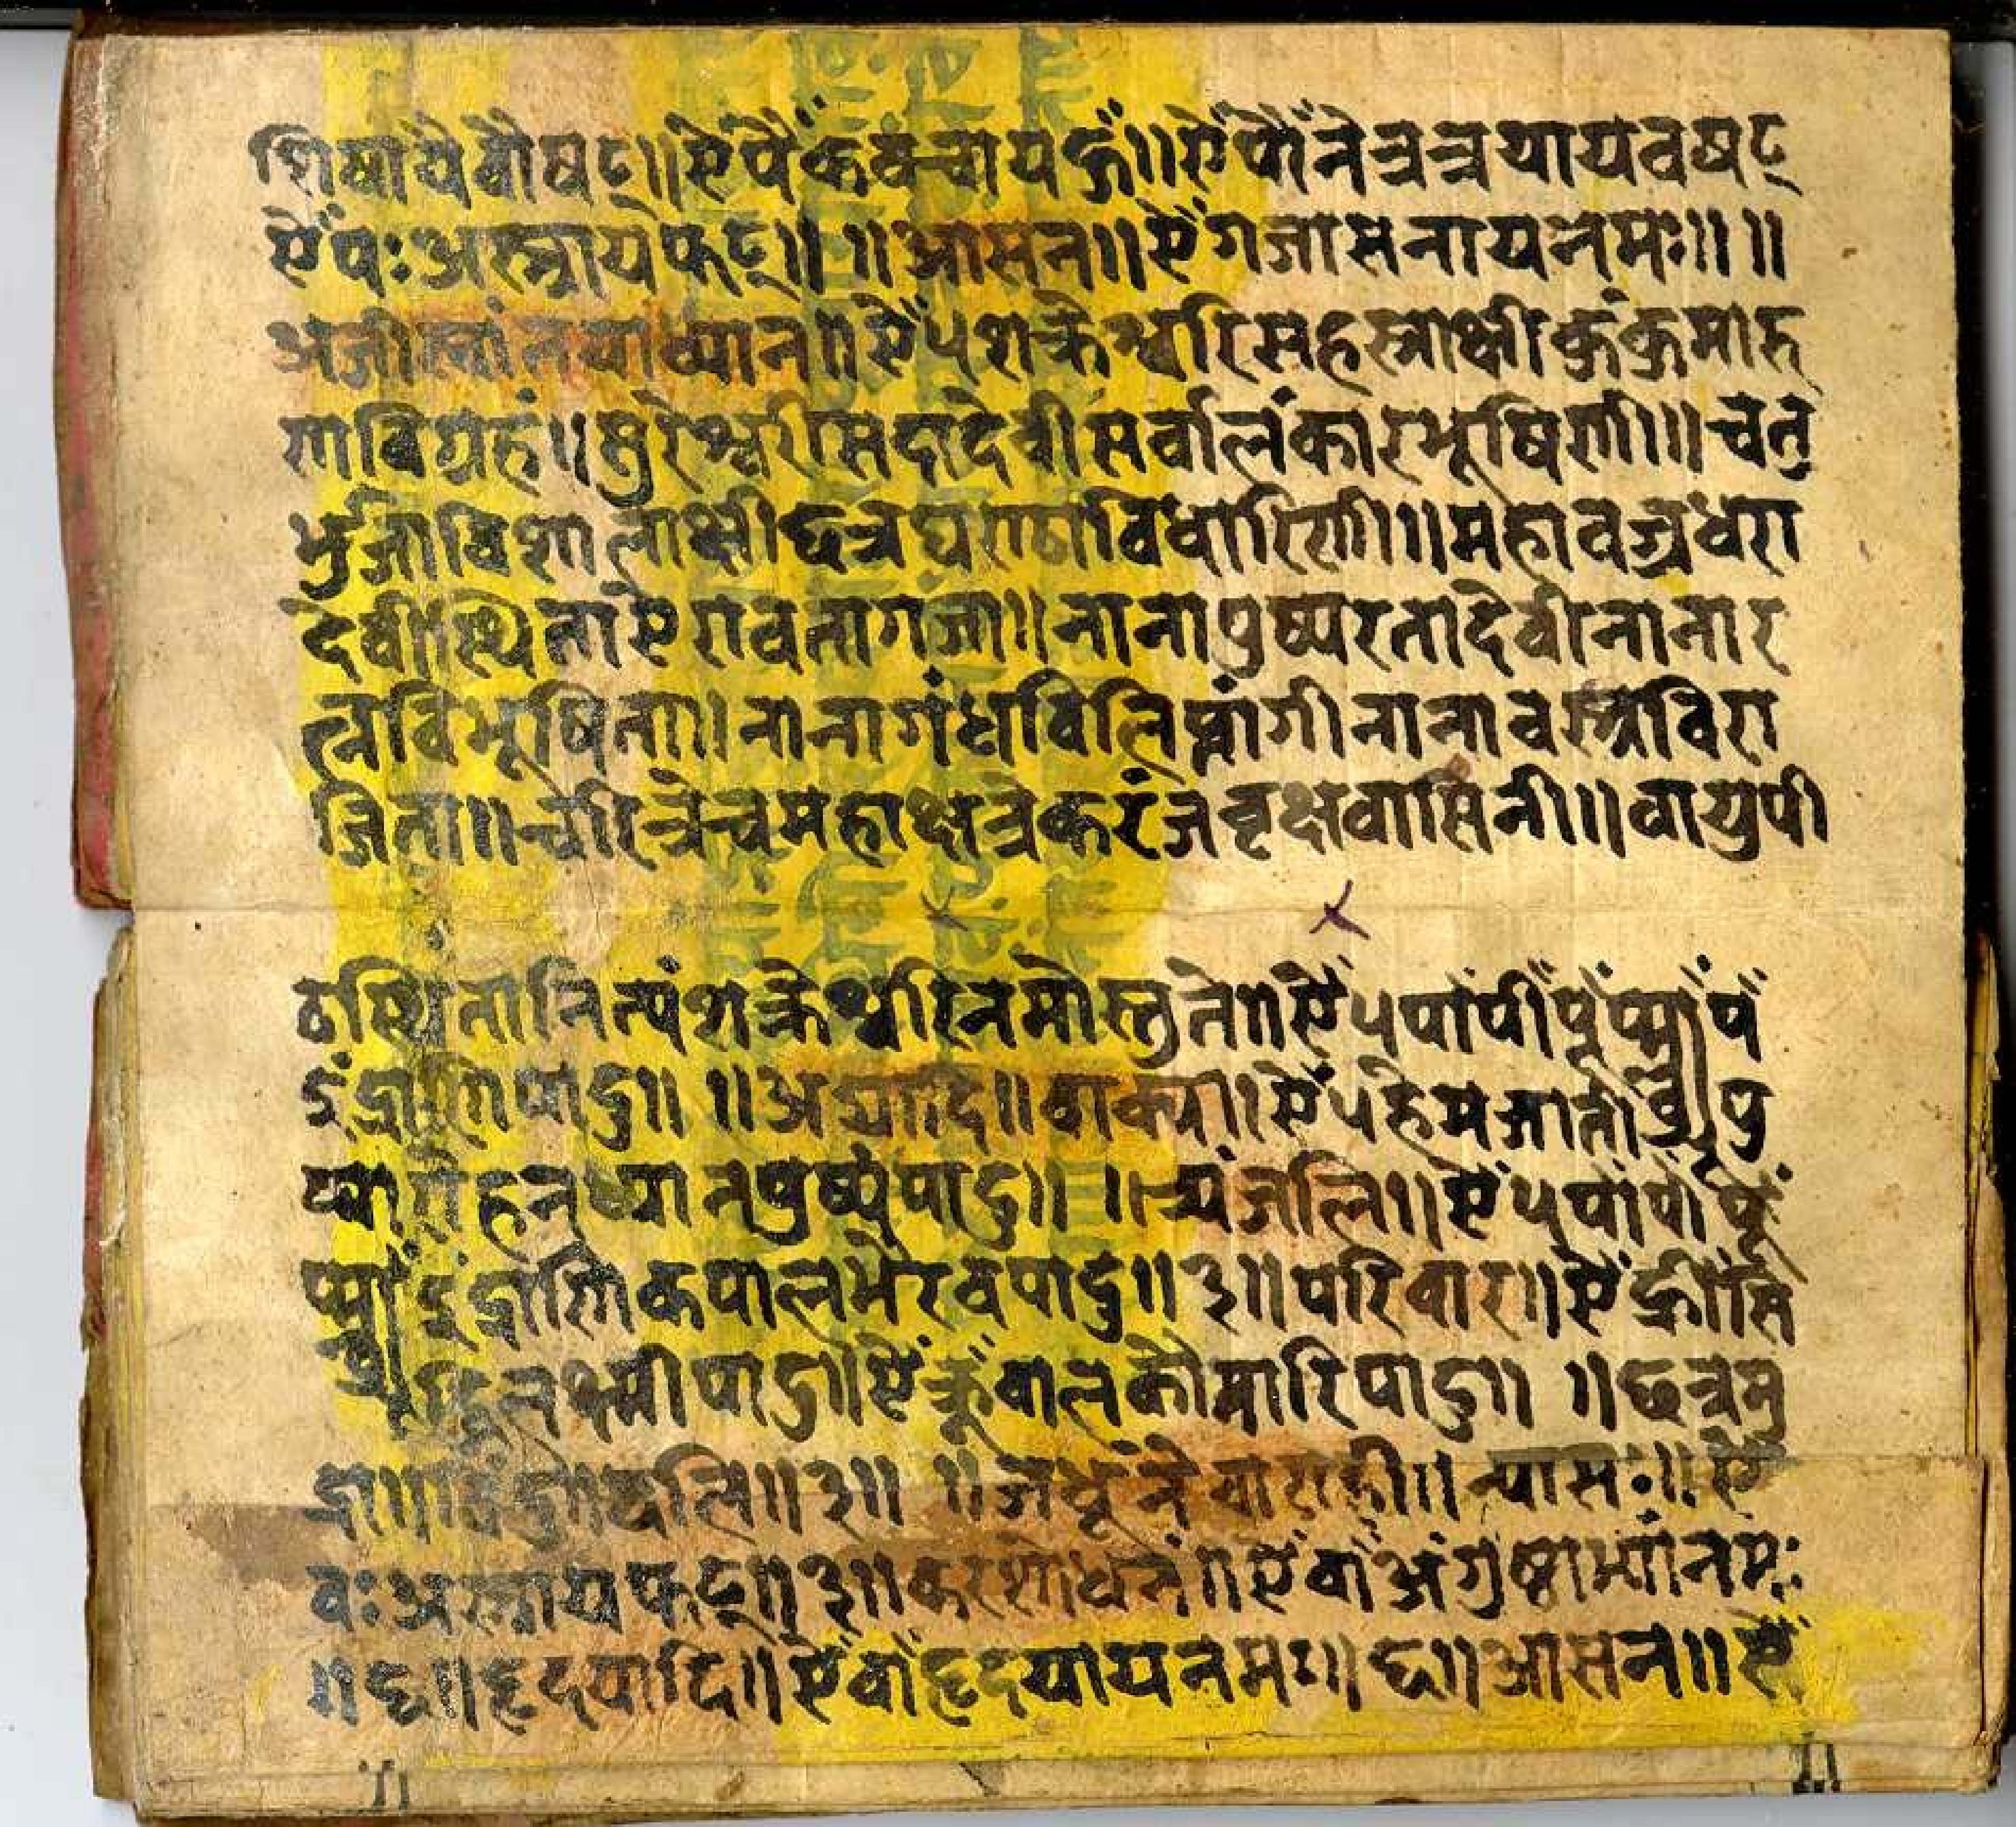 शिषायै वौषट्॥ ऐं पैं कवचाय हूँ॥ ऐं पौं नेत्रत्रयाय वषट्
ऐं पः अस्त्राय फट्॥ ॥ आसन॥ ऐं गजासनाय नमः॥ ॥
ध्यान॥ ऐं ५ शक्रेश्वरि सहस्राक्षी कुंकुमारु
णाविग्रहं॥ सुरेश्वरी सदा देवी सर्वालंकारभूषिणी॥ चतु
र्भुजा विशालाक्षी छत्रघण्ठा विधारिणी॥ महावज्रधरा
देवी स्थिता ऐरावतागजा॥ नाना पुष्परता देवी नानार
त्नविभूषिता॥ नानागंधविलिप्तांगी नानावस्त्रविरा
जिता॥ चरित्रे च महाक्षत्रे करंजवृक्षवासिनी॥ वायुपी
ठस्थिता नित्यं शक्रेश्वरि नमोस्तुते॥ ऐं ५ पां पीं पूं
इंद्राणि पादु॥ ॥ अद्यादि॥ वाक्य॥ ऐं ५ हेमजाती पु
पुष्पं पादु॥ ॥ त्र्यंजलि॥ ऐं ५ पां पीं पूं
इंद्राणि कपालभैरव पादु॥ ३॥ परिवार॥ ऐं ह्रीं सि
द्धिलक्ष्मी पादु॥ ऐं क्रूं बालकौमारि पादु॥ ॥ छत्रमु
द्रा॥ बिंदु॥ बलि॥ ३॥ ॥ वाराही॥ न्यासः॥ ऐं
वः अस्त्राय फट्॥ ३॥ करशोधनं॥ ऐं वां अंगुष्ठाभ्यां नमः
॥ छ॥ हृदयादि॥ ऐं वां हृदयाय नमः॥ छ॥ आसन॥ ऐं